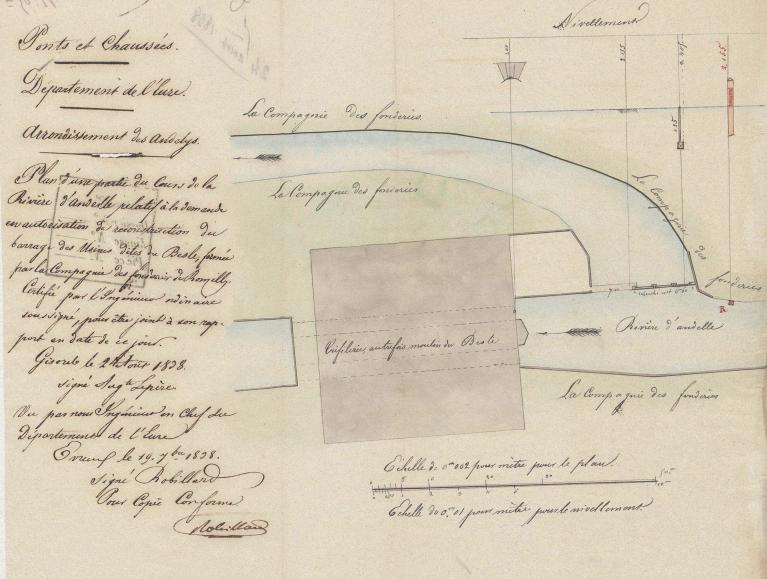 Ponts et Chaussées.
Département de l'Eure.
Arrondissement des Andelys.
Plan d'une partie du Cours de la
Rivière d'andelle relatif à la demande
en autorisation de reconstruction du
barrage des Usines dites du Besle, formée
par la Compagnie des fonderies de Romilly.
Certifié par l'Ingénieur ordinaire
soussigné, pour être joint à son rap-
port en date de ce jour.
Gisors le 24 Aout 1838.
Signé Aug.te Lepère.
Vu par nous Ingénieur en Chef du
Département de l'Eure
Evreux le 19. 7.bre 1838.
Signé Robillard
Pour Copie Conforme
Robillard
Nivellement
2,155
La Compagnie des fonderies.
La Compagnie des fonderies
La Compagnie des fonderies
R
Rivière d'andelle
Tréfilerie, autrefois moulin du Besle
La Compagnie des fonderies
Echelle de 0,m002 pour mètre pour le plan.
Echelle de 0,m01 pour mètre pour le nivellement.